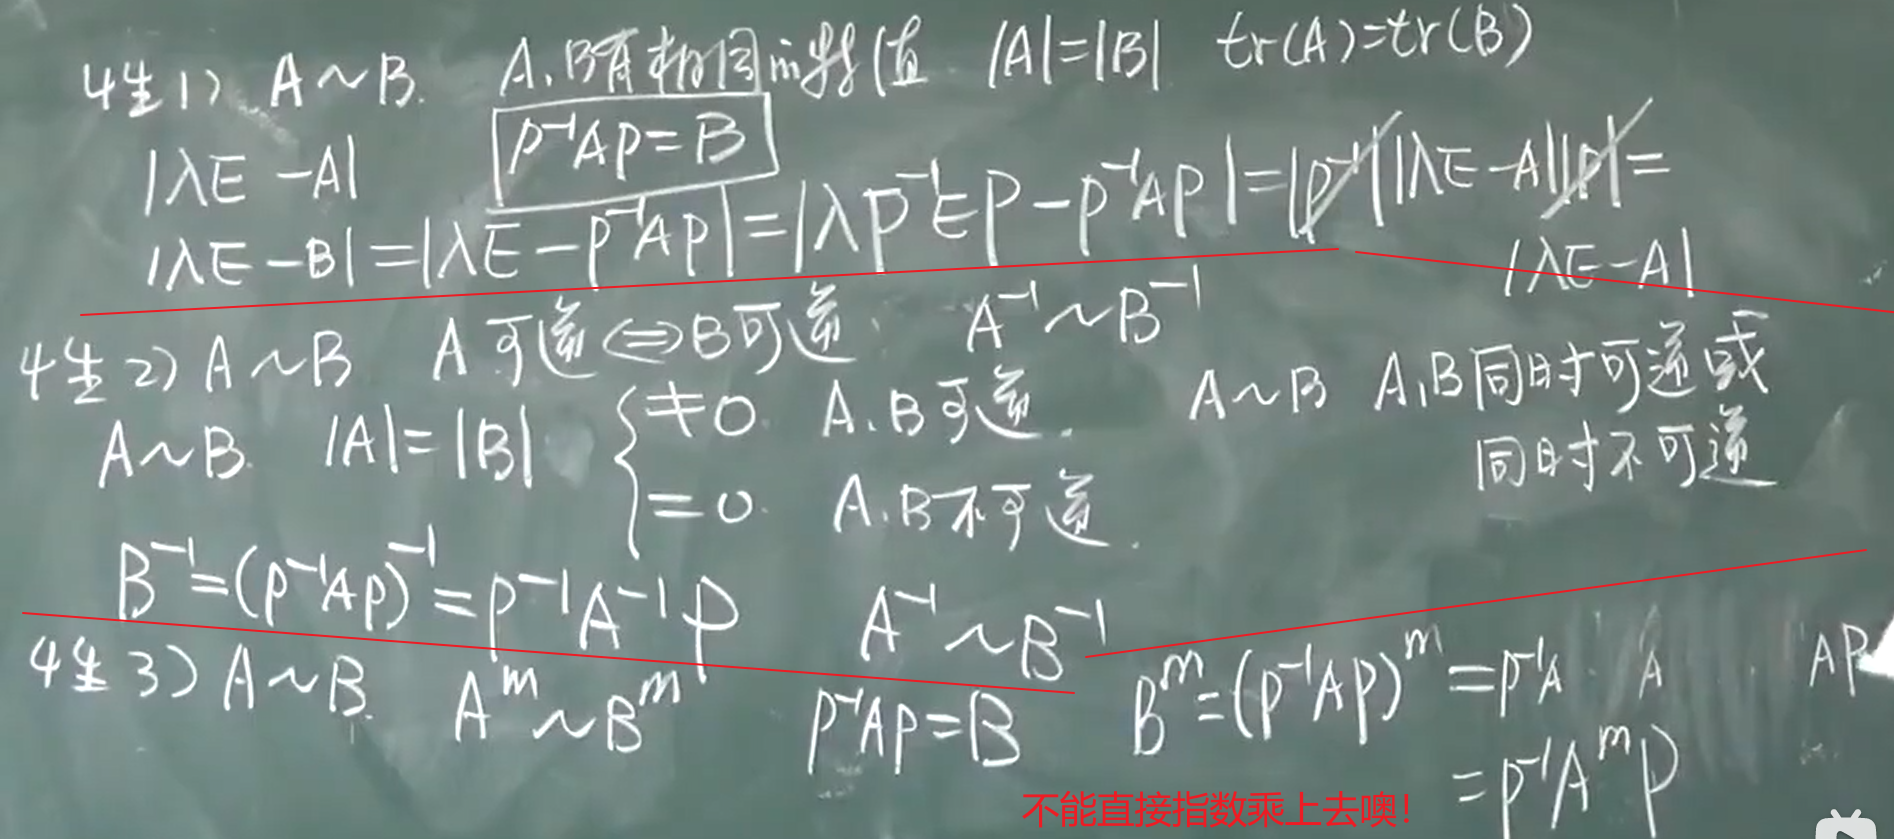 性1) A~B. A.B有相同的特值 |A|=|B| tr(A)=tr(B)
|λE-A| P⁻¹AP=B
|λE-B|=|λE-P⁻¹AP|=|λP⁻¹EP-P⁻¹AP|=|P⁻¹||λE-A||P|=
|λE-A|
性2) A~B A可逆⇔B可逆. A⁻¹~B⁻¹
A~B. |A|=|B| {≠0. A.B可逆.
=0. A.B不可逆.
A~B A,B同时可逆或
同时不可逆
B⁻¹=(P⁻¹AP)⁻¹=P⁻¹A⁻¹P A⁻¹~B⁻¹
性3) A~B. Aᵐ~Bᵐ P⁻¹AP=B Bᵐ=(P⁻¹AP)ᵐ=P⁻¹A·A··AP
=P⁻¹AᵐP
不能直接指数乘上去噢!